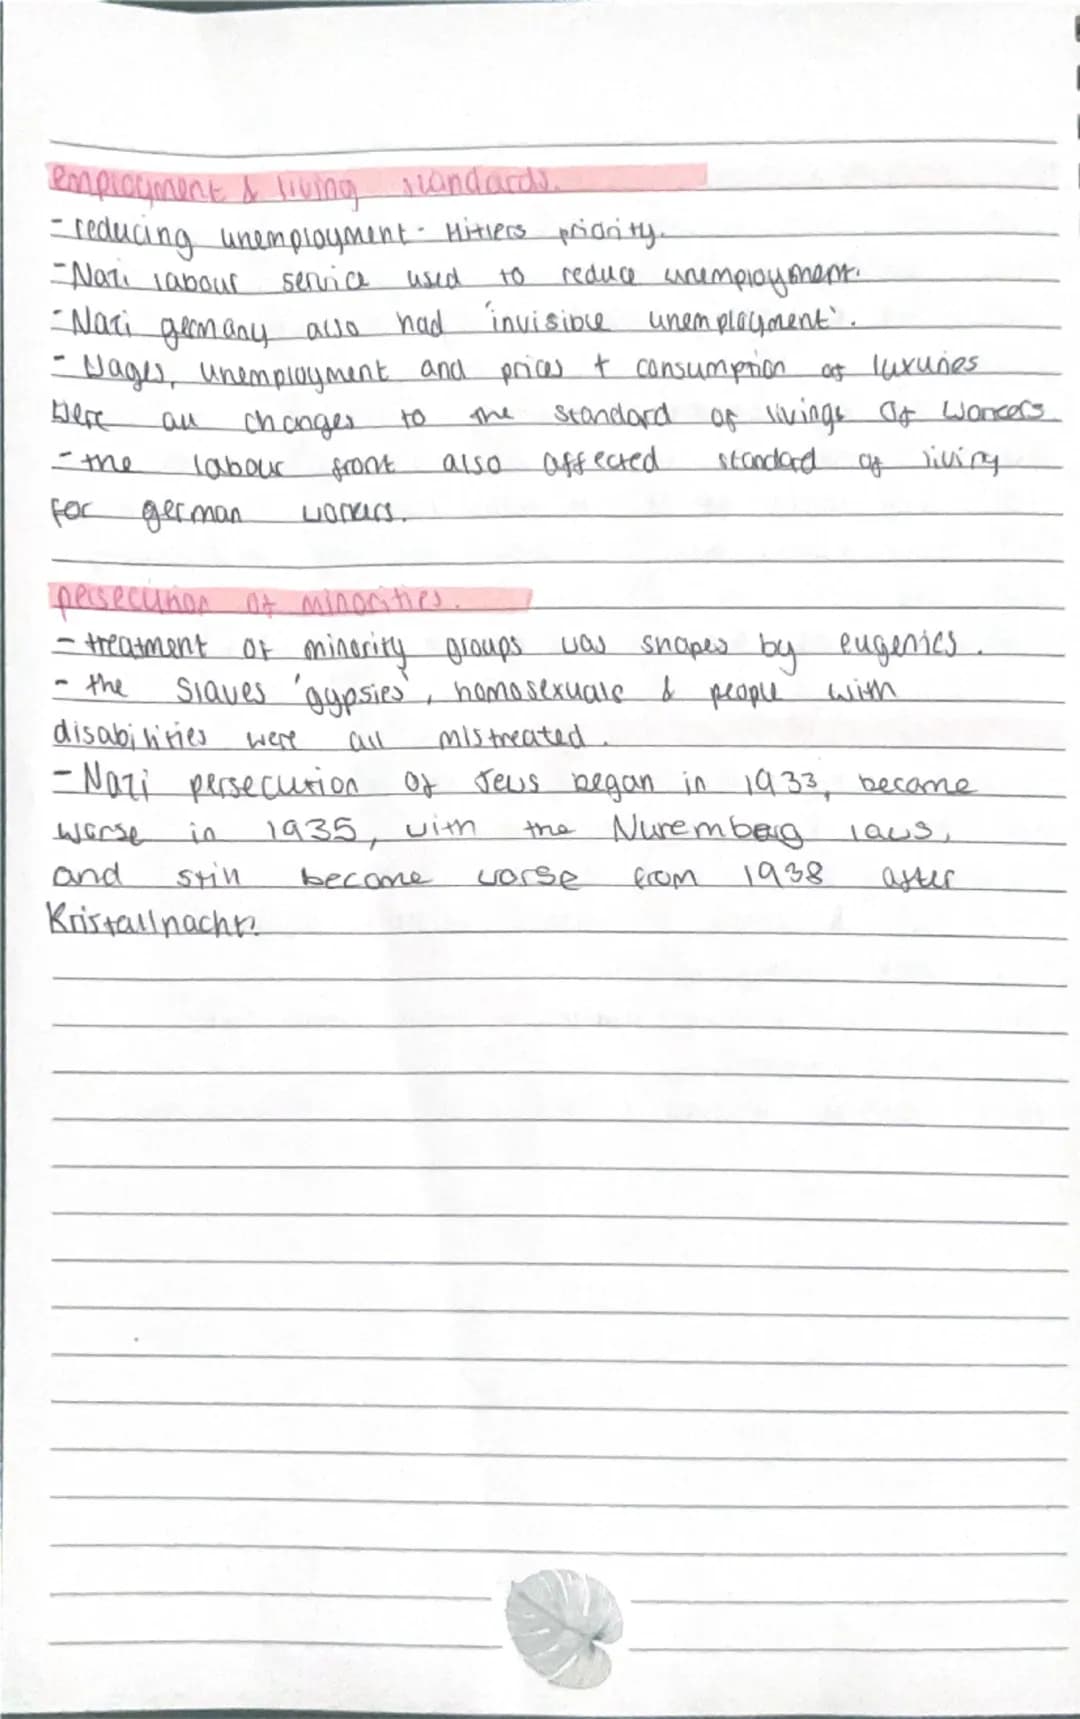 employment & living standards.
- reducing unemployment - Hitlers priority.
- Nazi labour service used to reduce unemployment.
- Nazi germany also had 'invisible unemployment'.
- Wages, unemployment and prices + consumption of luxuries
were all changes to the standard of livings of workers
- the labour front also affected standard of living
for german workers.
persecution of minorities.
- treatment of minority groups was shapes by eugenics.
- the Slaves 'gypsies', homosexuals & people with
disabilities were all mistreated.
- Nazi persecution of Jews began in 1933, became
worse in 1935, with the Nuremberg laws,
and still become worse from 1938 after
Kristallnacht.